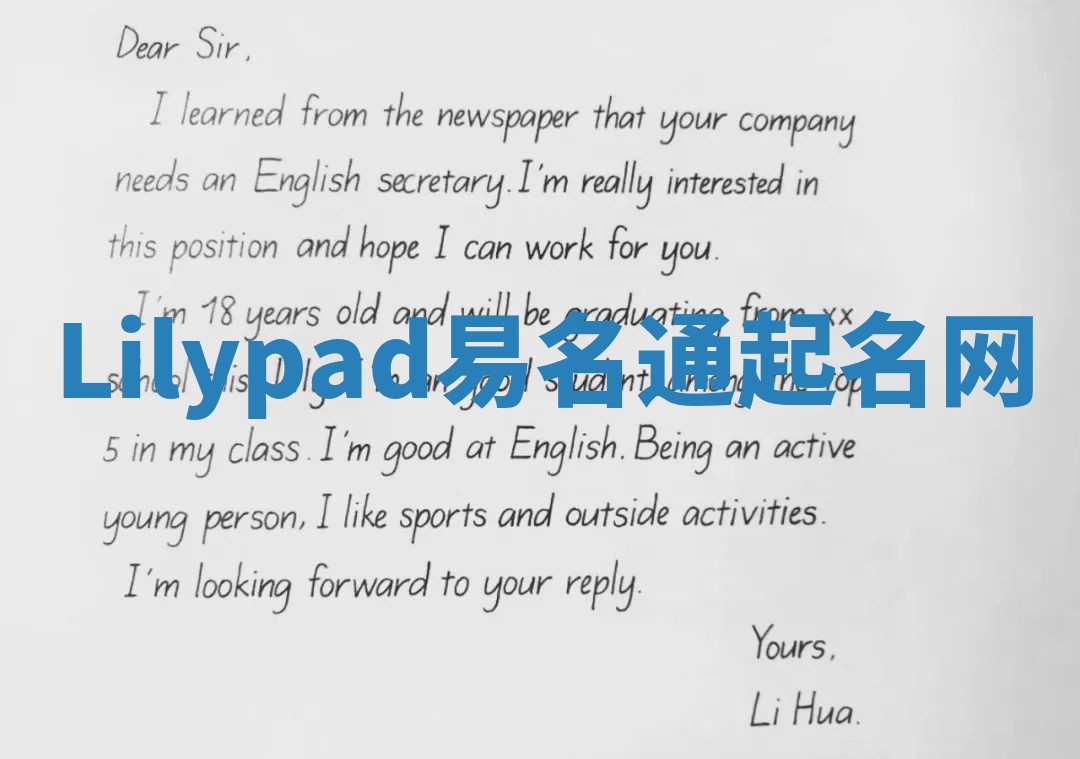 Dear Sir,
I learned from the newspaper that your company
needs an English secretary. I'm really interested in
this position and hope I can work for you.
I'm 18 years old and will be graduating from xx
Lilypad易名通起名网
school this July. I'm a good student, among the top
5 in my class. I'm good at English. Being an active
young person, I like sports and outside activities.
I'm looking forward to your reply.
Yours,
Li Hua.